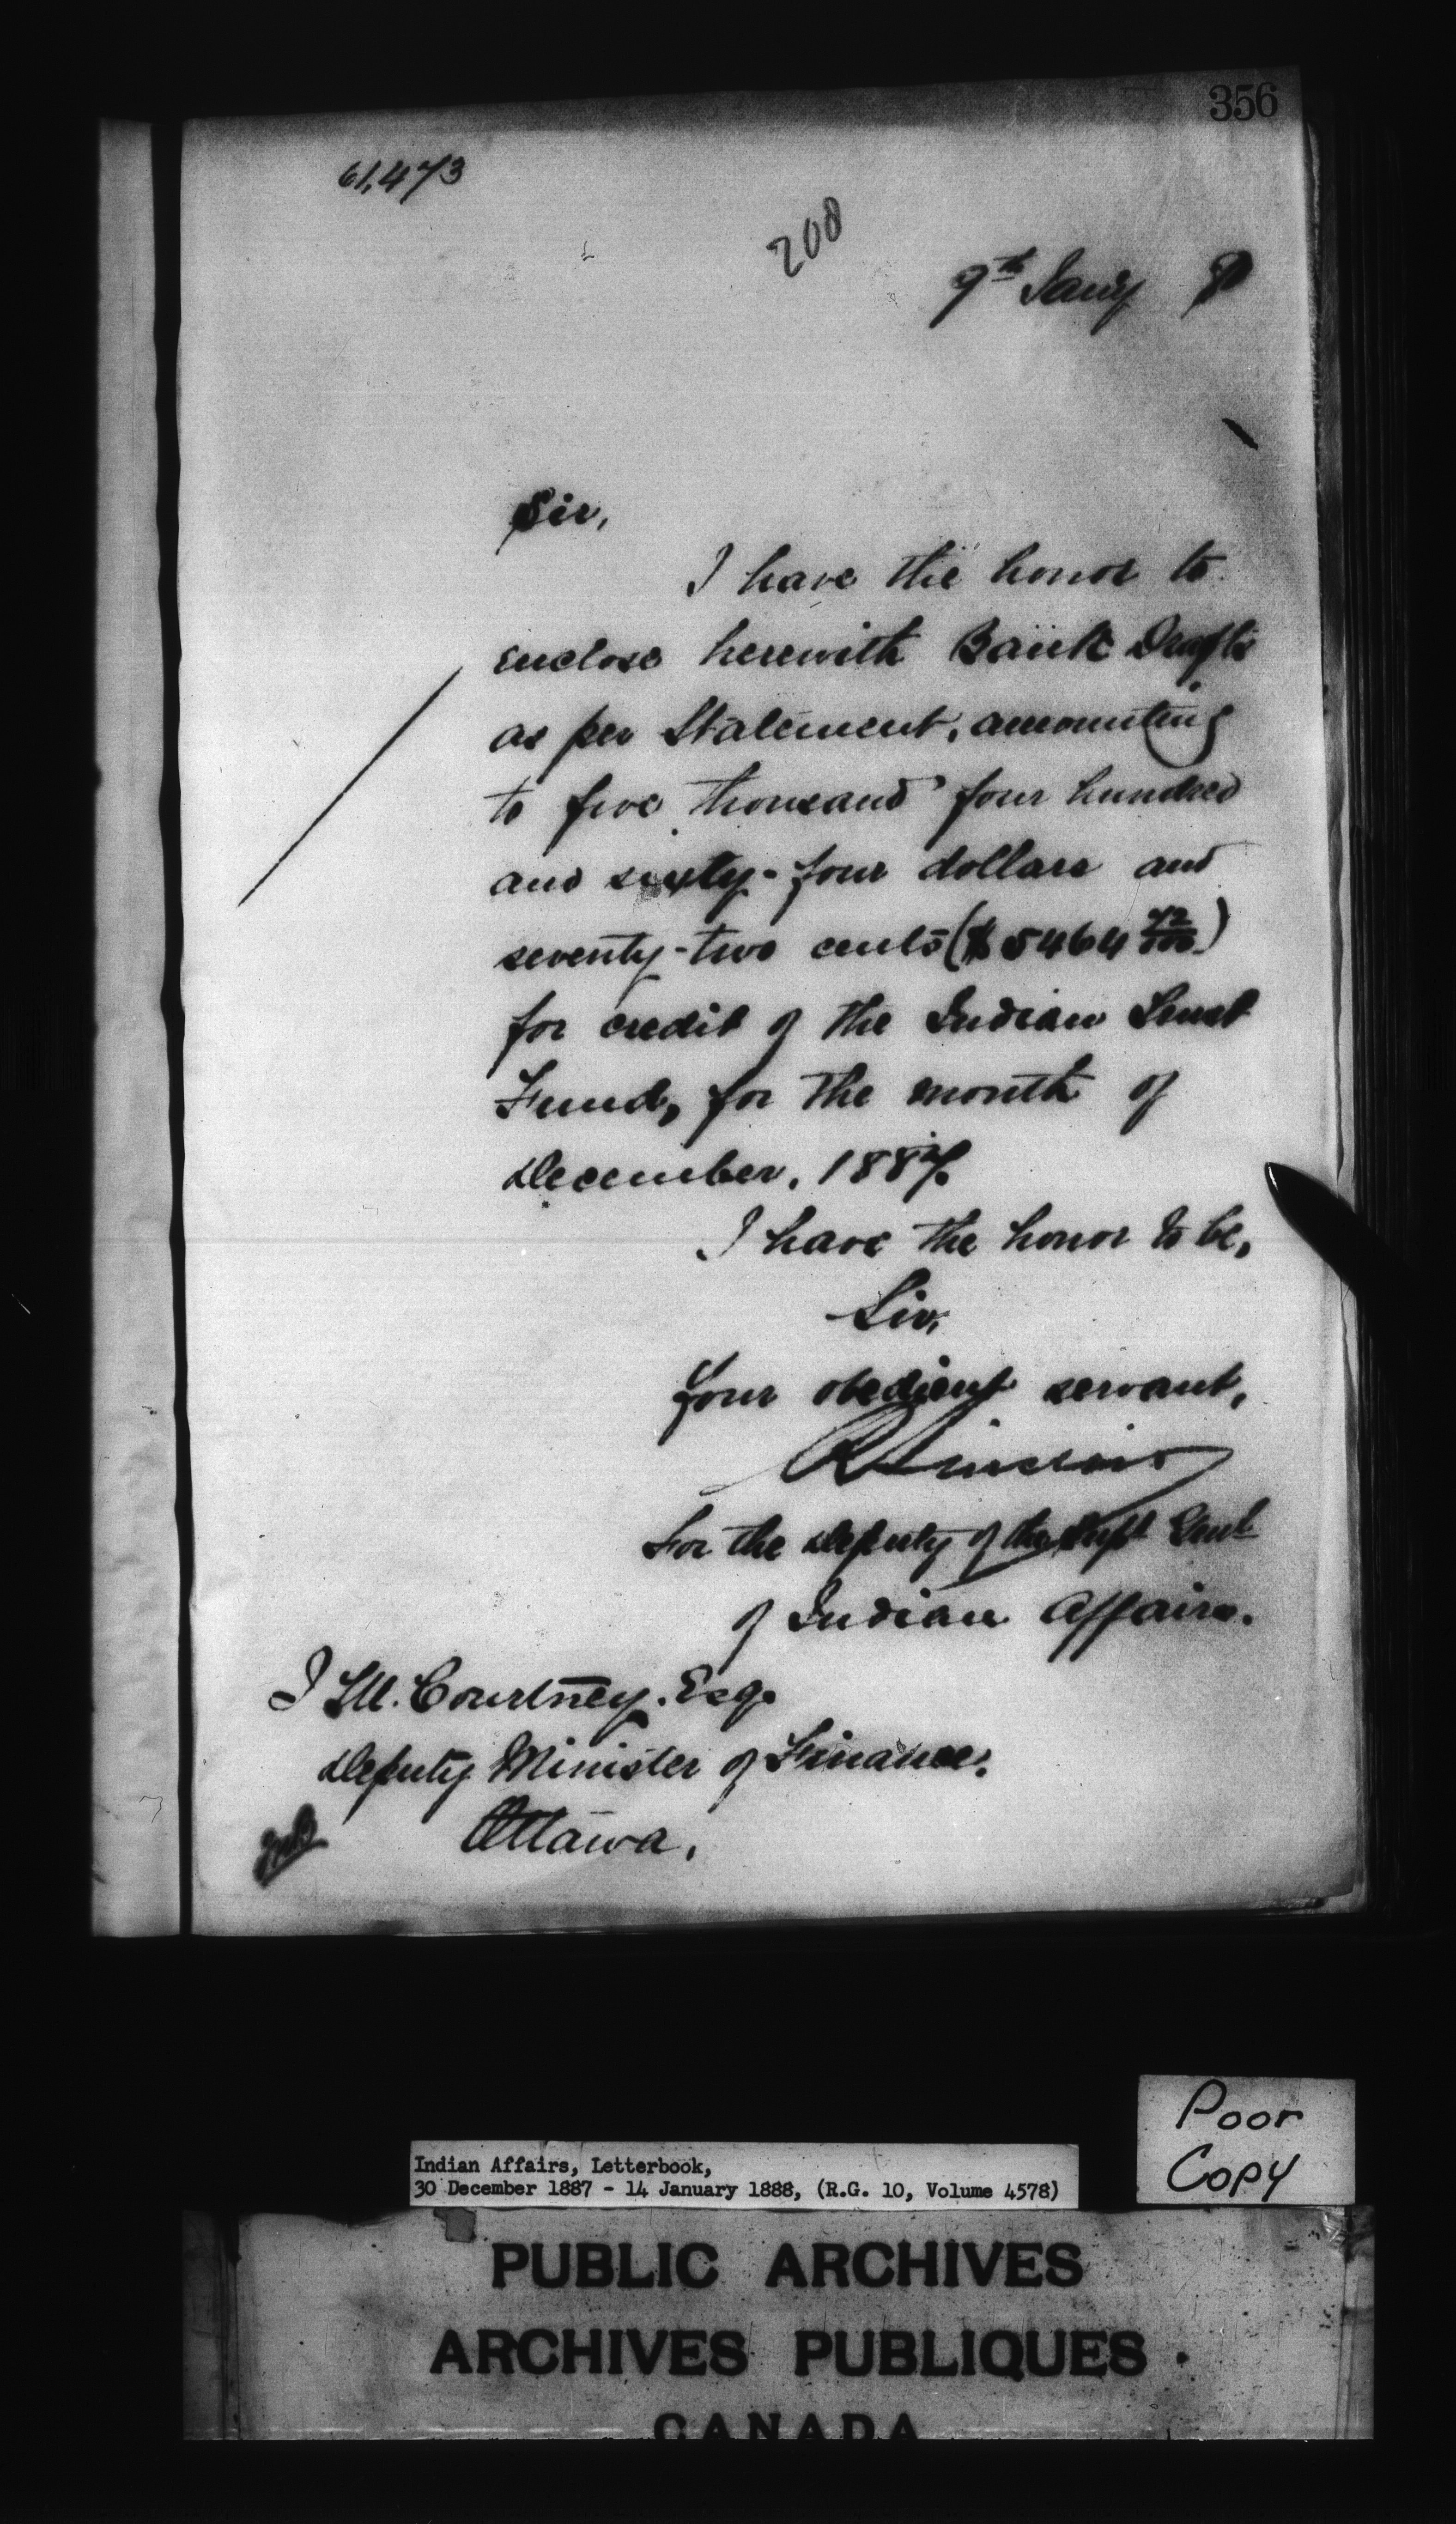 356
61,473
200
9th Jany 8
Sir,
I have the honor to
enclose herewith Bank Drafts
as per Statement, amounting
to five thousand four hundred
and sixty-four dollars and
seventy-two cents ($5464 72/100)
for credit of the Indian Trust
Fund, for the month of
December, 1887.
I have the honor to be,
Sir,
Your obedient servant,
R Sinclair
For the Deputy of the Supt Genl
of Indian Affairs.
J M. Courtney. Esq.
Deputy Minister of Finance.
Ottawa.
Poor
Copy
Indian Affairs, Letterbook,
30 December 1887 - 14 January 1888, (R.G. 10, Volume 4578)
PUBLIC ARCHIVES
ARCHIVES PUBLIQUES
CANADA